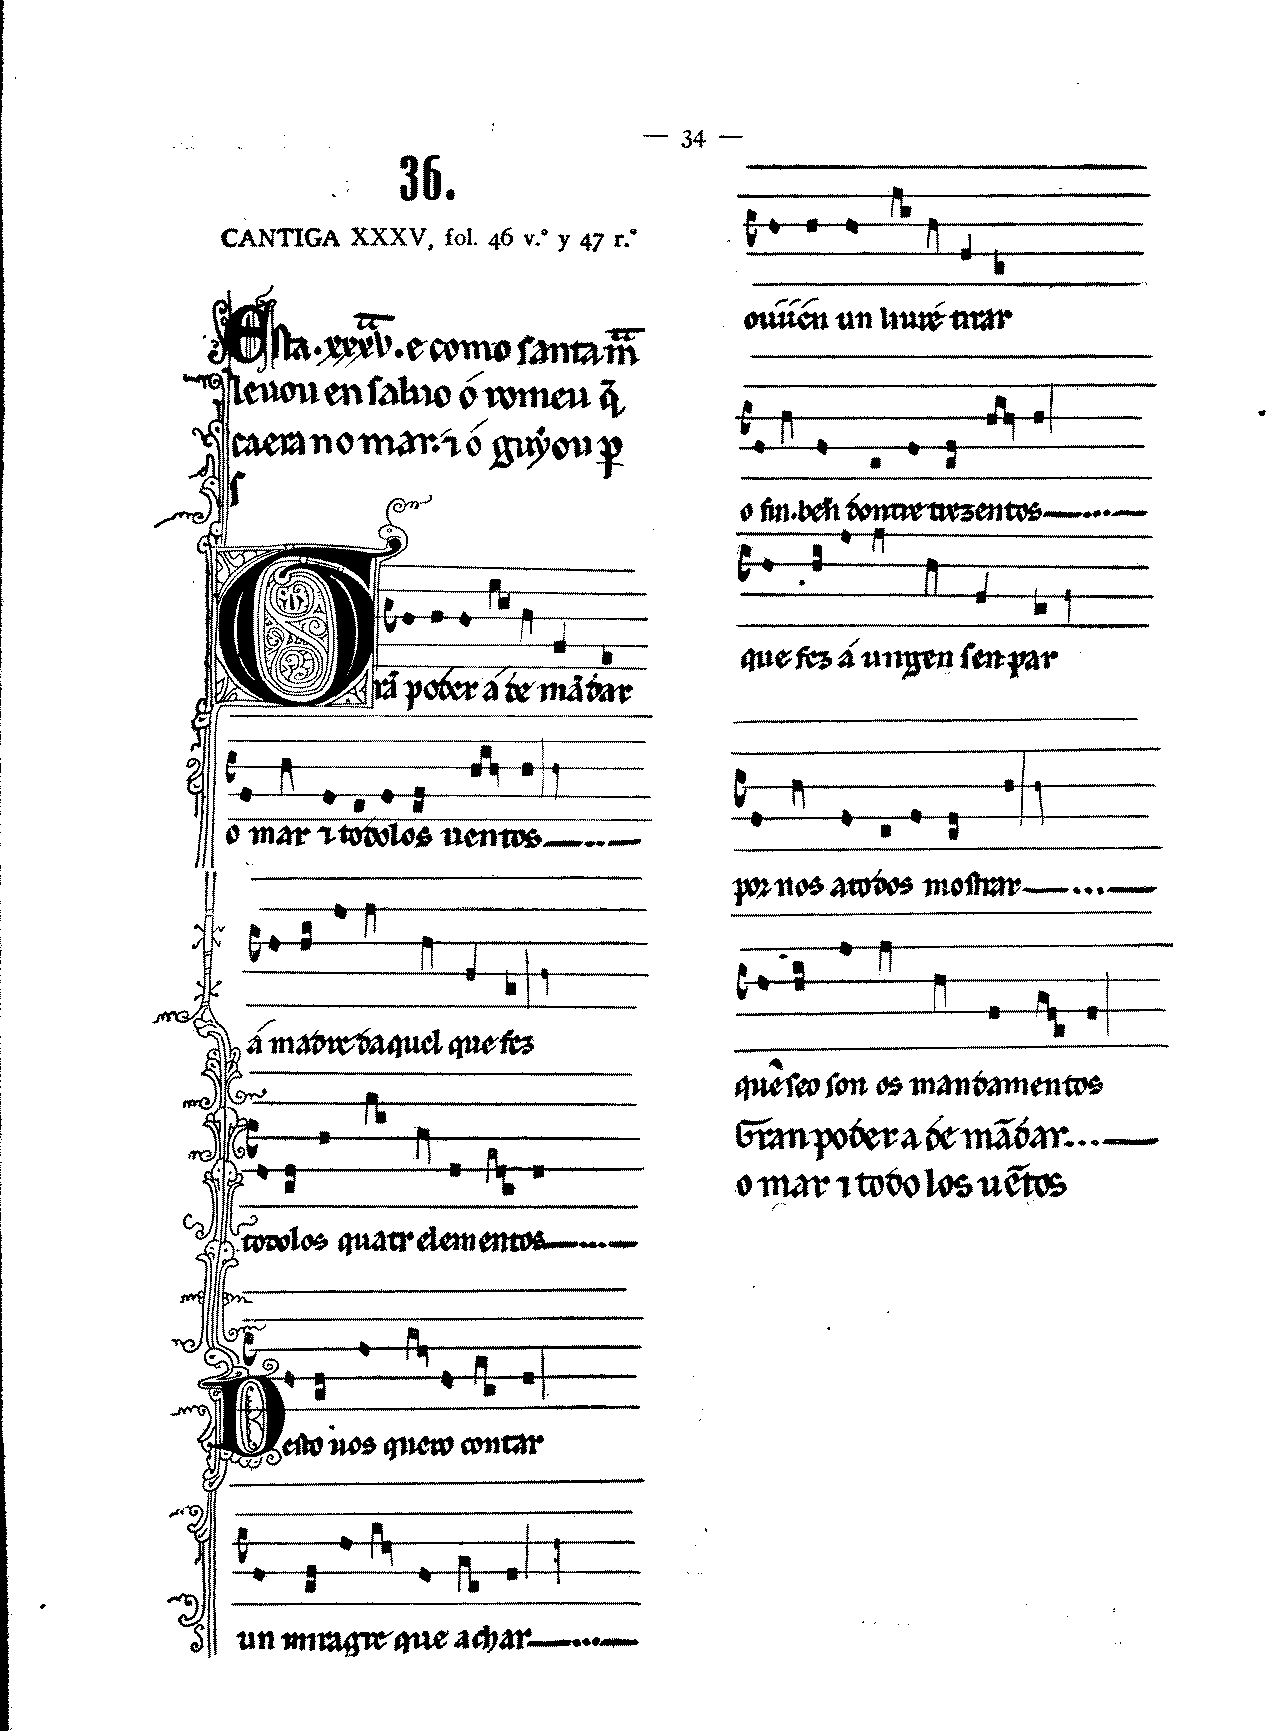 — 34 —
36.
CANTIGA XXXV, fol. 46 v.º y 47 r.º
Esta .xxxv. e como santa m̃
leuou en saluo ó romeu q̃
caera no mar. ⁊ ó guyou p
Grã poder á de mãdar
o mar ⁊ todolos uentos
á madre daquel que fez
todolos quatr elementos
Desto uos quero contar
un miragre que achar
ouuéen un liuré tirar
o fin. ben dontre trezentos
que fez á uirgen sen par
por nos a todos mostrar
que seo son os mandamentos
Gran poder a de mãdar...
o mar ⁊ todolos uẽtos